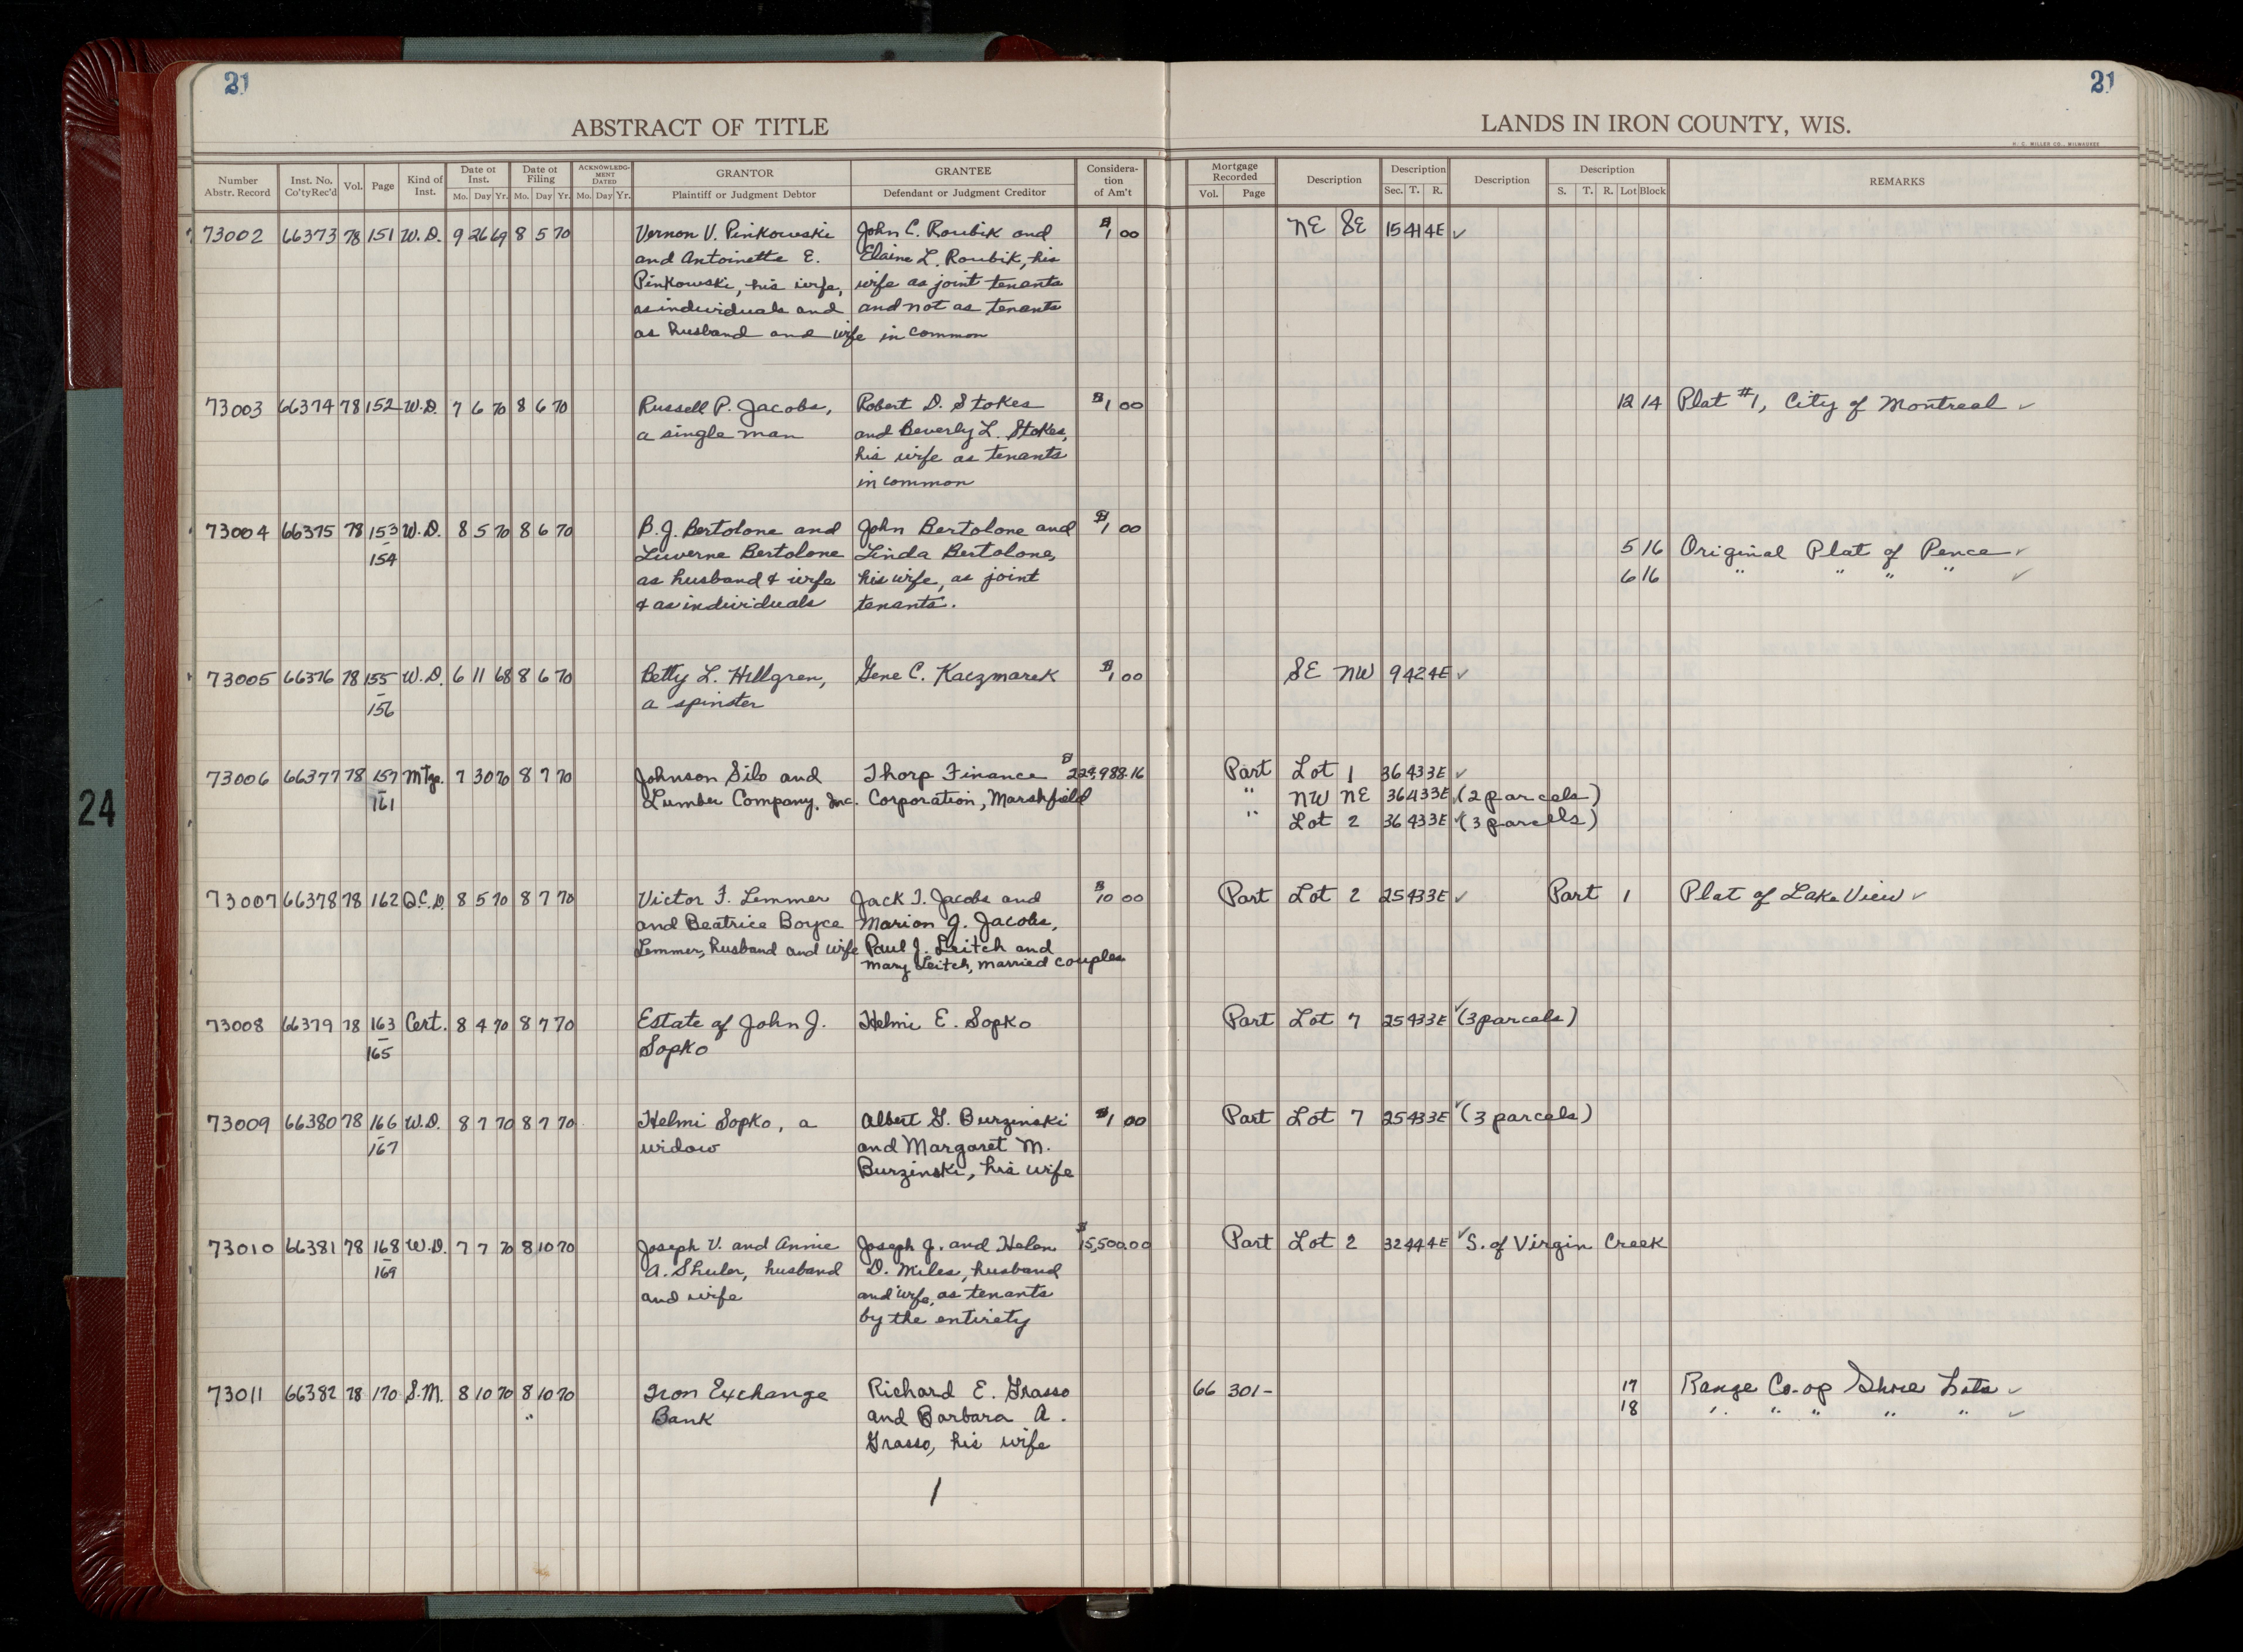 21
21
ABSTRACT OF TITLE
LANDS IN IRON COUNTY, WIS.
H. C. MILLER CO., MILWAUKEE
Number Abstr. Record | Inst. No. Co'ty Rec'd | Vol. | Page | Kind of Inst. | Date of Inst. Mo. Day Yr. | Date of Filing Mo. Day Yr. | ACKNOWLEDGMENT DATED Mo. Day Yr. | GRANTOR Plaintiff or Judgment Debtor | GRANTEE Defendant or Judgment Creditor | Consideration of Am't | Mortgage Recorded Vol. Page | Description | Description Sec. T. R. | Description | Description S. T. R. Lot Block | REMARKS
73002 66373 78 151 W.D. 9 26 69 8 5 70 Vernon V. Pinkowski John C. Roubik and $1 00 NE SE 15 41 4E ✓
and Antoinette E. Elaine L. Roubik, his
Pinkowski, his wife, wife as joint tenants
as individuals and and not as tenants
as husband and wife in common
73003 66374 78 152 W.D. 7 6 70 8 6 70 Russell P. Jacobs, Robert D. Stokes $1 00 12 14 Plat #1, City of Montreal ✓
a single man and Beverly L. Stokes,
his wife as tenants
in common
73004 66375 78 153 W.D. 8 5 70 8 6 70 B.J. Bertolone and John Bertolone and $1 00
- 154 Luverne Bertolone Linda Bertolone, 5 16 Original Plat of Pence ✓
as husband & wife his wife, as joint 6 16 " " " " ✓
& as individuals tenants.
73005 66376 78 155 W.D. 6 11 68 8 6 70 Betty L. Hillgren, Gene C. Kaczmarek $1 00 SE NW 9 42 4E ✓
- 156 a spinster
73006 66377 78 157 Mtge. 7 30 70 8 7 70 Johnson Silo and Thorp Finance $229,988.16 Part Lot 1 36 43 3E ✓
- 161 Lumber Company, Inc. Corporation, Marshfield " NW NE 36 43 3E ✓ (2 parcels)
" Lot 2 36 43 3E ✓ (3 parcels)
73007 66378 78 162 Q.C.D. 8 5 70 8 7 70 Victor F. Lemmer Jack T. Jacobs and $10 00 Part Lot 2 25 43 3E ✓ Part 1 Plat of Lake View ✓
and Beatrice Boyce Marion J. Jacobs,
Lemmer, husband and wife Paul J. Leitch and
Mary Leitch, married couples
73008 66379 78 163 Cert. 8 4 70 8 7 70 Estate of John J. Helmi E. Sopko Part Lot 7 25 43 3E ✓ (3 parcels)
- 165 Sopko
73009 66380 78 166 W.D. 8 7 70 8 7 70 Helmi Sopko, a Albert G. Burzinski $1 00 Part Lot 7 25 43 3E ✓ (3 parcels)
- 167 widow and Margaret M.
Burzinski, his wife
73010 66381 78 168 W.D. 7 7 70 8 10 70 Joseph V. and Annie Joseph J. and Helen $15,500.00 Part Lot 2 32 44 4E ✓ S. of Virgin Creek
- 169 A. Shuler, husband D. Miles, husband
and wife and wife, as tenants
by the entirety
73011 66382 78 170 S.M. 8 10 70 8 10 70 Iron Exchange Richard E. Grasso 66 301- 17 Range Co-op Shore Lots ✓
" Bank and Barbara A. 18 " " " " " ✓
Grasso, his wife
1
24